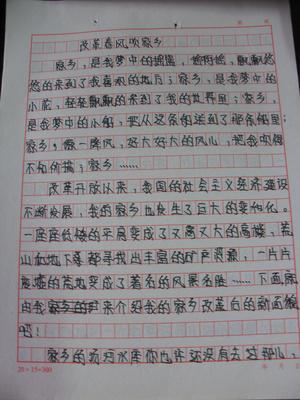 改革春风吹家乡
家乡,是我梦中的摇摇,摇啊摇,飘飘
悠的来到了我喜欢的地方;家乡,是我梦中的
小花,轻轻飘飘的来到了我的世界里;家乡,
是我梦中的小船,把从这条街送到了那条街里;
家乡,像一阵风,好大好大的风儿,把我吹得
不知何接;家乡……
改革开放以来,我国的社会主义经济建设
不断发展,我的家乡也发生了巨大的变和化。
一座座低矮的平房变成了又高又大的高楼,荒
山和地下等都寻找出丰富的矿产资源,一片片
的荒地变成了著名的风景名胜……下面
由我来介绍我的家乡改革后的新面貌
吧!
家乡的汤河水库你也许还没有去过那儿,
20×15=300
年 月 日